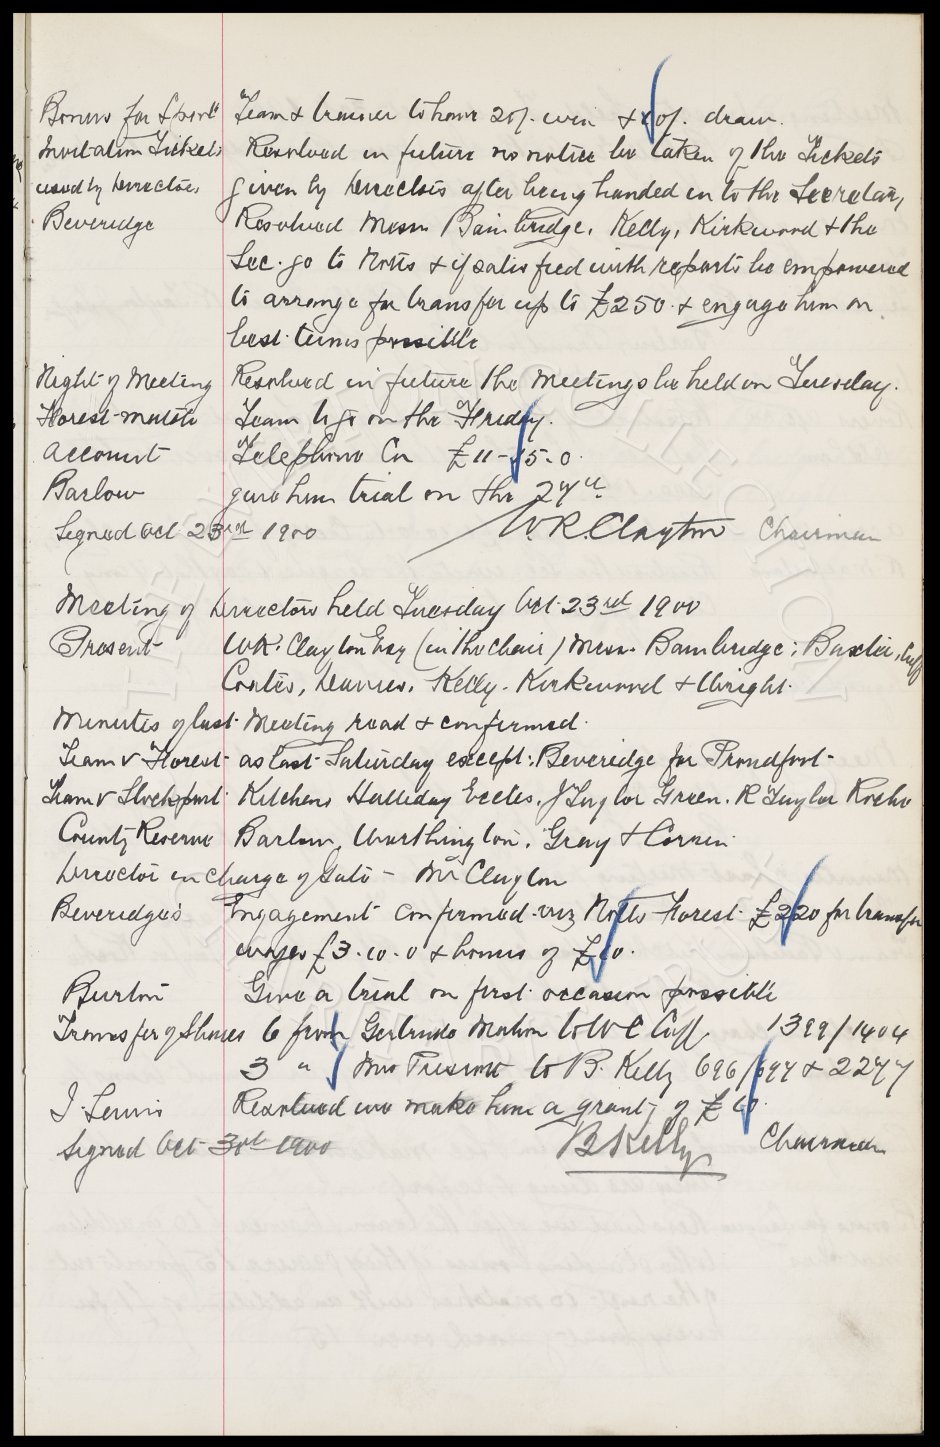 Bonus for Sport Team & trainer to have 20/- win & 10/- draw.
Invitation Tickets Resolved in future no notice be taken of the Tickets
used by Directors given by Directors after being handed in to the Secretary
Beveridge Resolved Messrs Bainbridge, Kelly, Kirkwood & the
Sec. go to Notts & if satisfied with reports be empowered
to arrange for transfer up to £250 & engage him on
best terms possible
Night of Meeting Resolved in future the Meetings be held on Tuesday.
Forest match Team to go on the Friday.
Account Telephone Co £11-15-0.
Barlow give him trial on the 27th
Signed Oct 23rd 1900 W.R. Clayton Chairman
Meeting of Directors held Tuesday Oct. 23rd 1900
Present W.R. Clayton Esq (in the chair) Messrs. Bainbridge, Baxter, Cuff
Coates, Davies, Kelly. Kirkwood & Wright.
Minutes of last Meeting read & confirmed.
Team v Forest as last Saturday except: Beveridge for Proudfoot
Team v Stockport Kitchen Halliday Eccles. J Taylor Green. R Taylor Roche
County Reserve Barlow, Worthington, Gray & Corrin
Director in charge of Gate - Mr Clayton
Beveridge's Engagement confirmed. viz Notts Forest £220 for transfer
wages £3.10.0 & bonus of £10.
Burton Give a trial on first occasion possible
Transfer of Shares 6 from Gertrude Mahon to W C Cuff 1399/1404
3 " Mrs Prescott to B. Kelly 696/697 & 2277
J. Lewis Resolved we make him a grant of £10.
Signed Oct 30th 1900 B Kelly Chairman
THE EVERTON COLLECTION